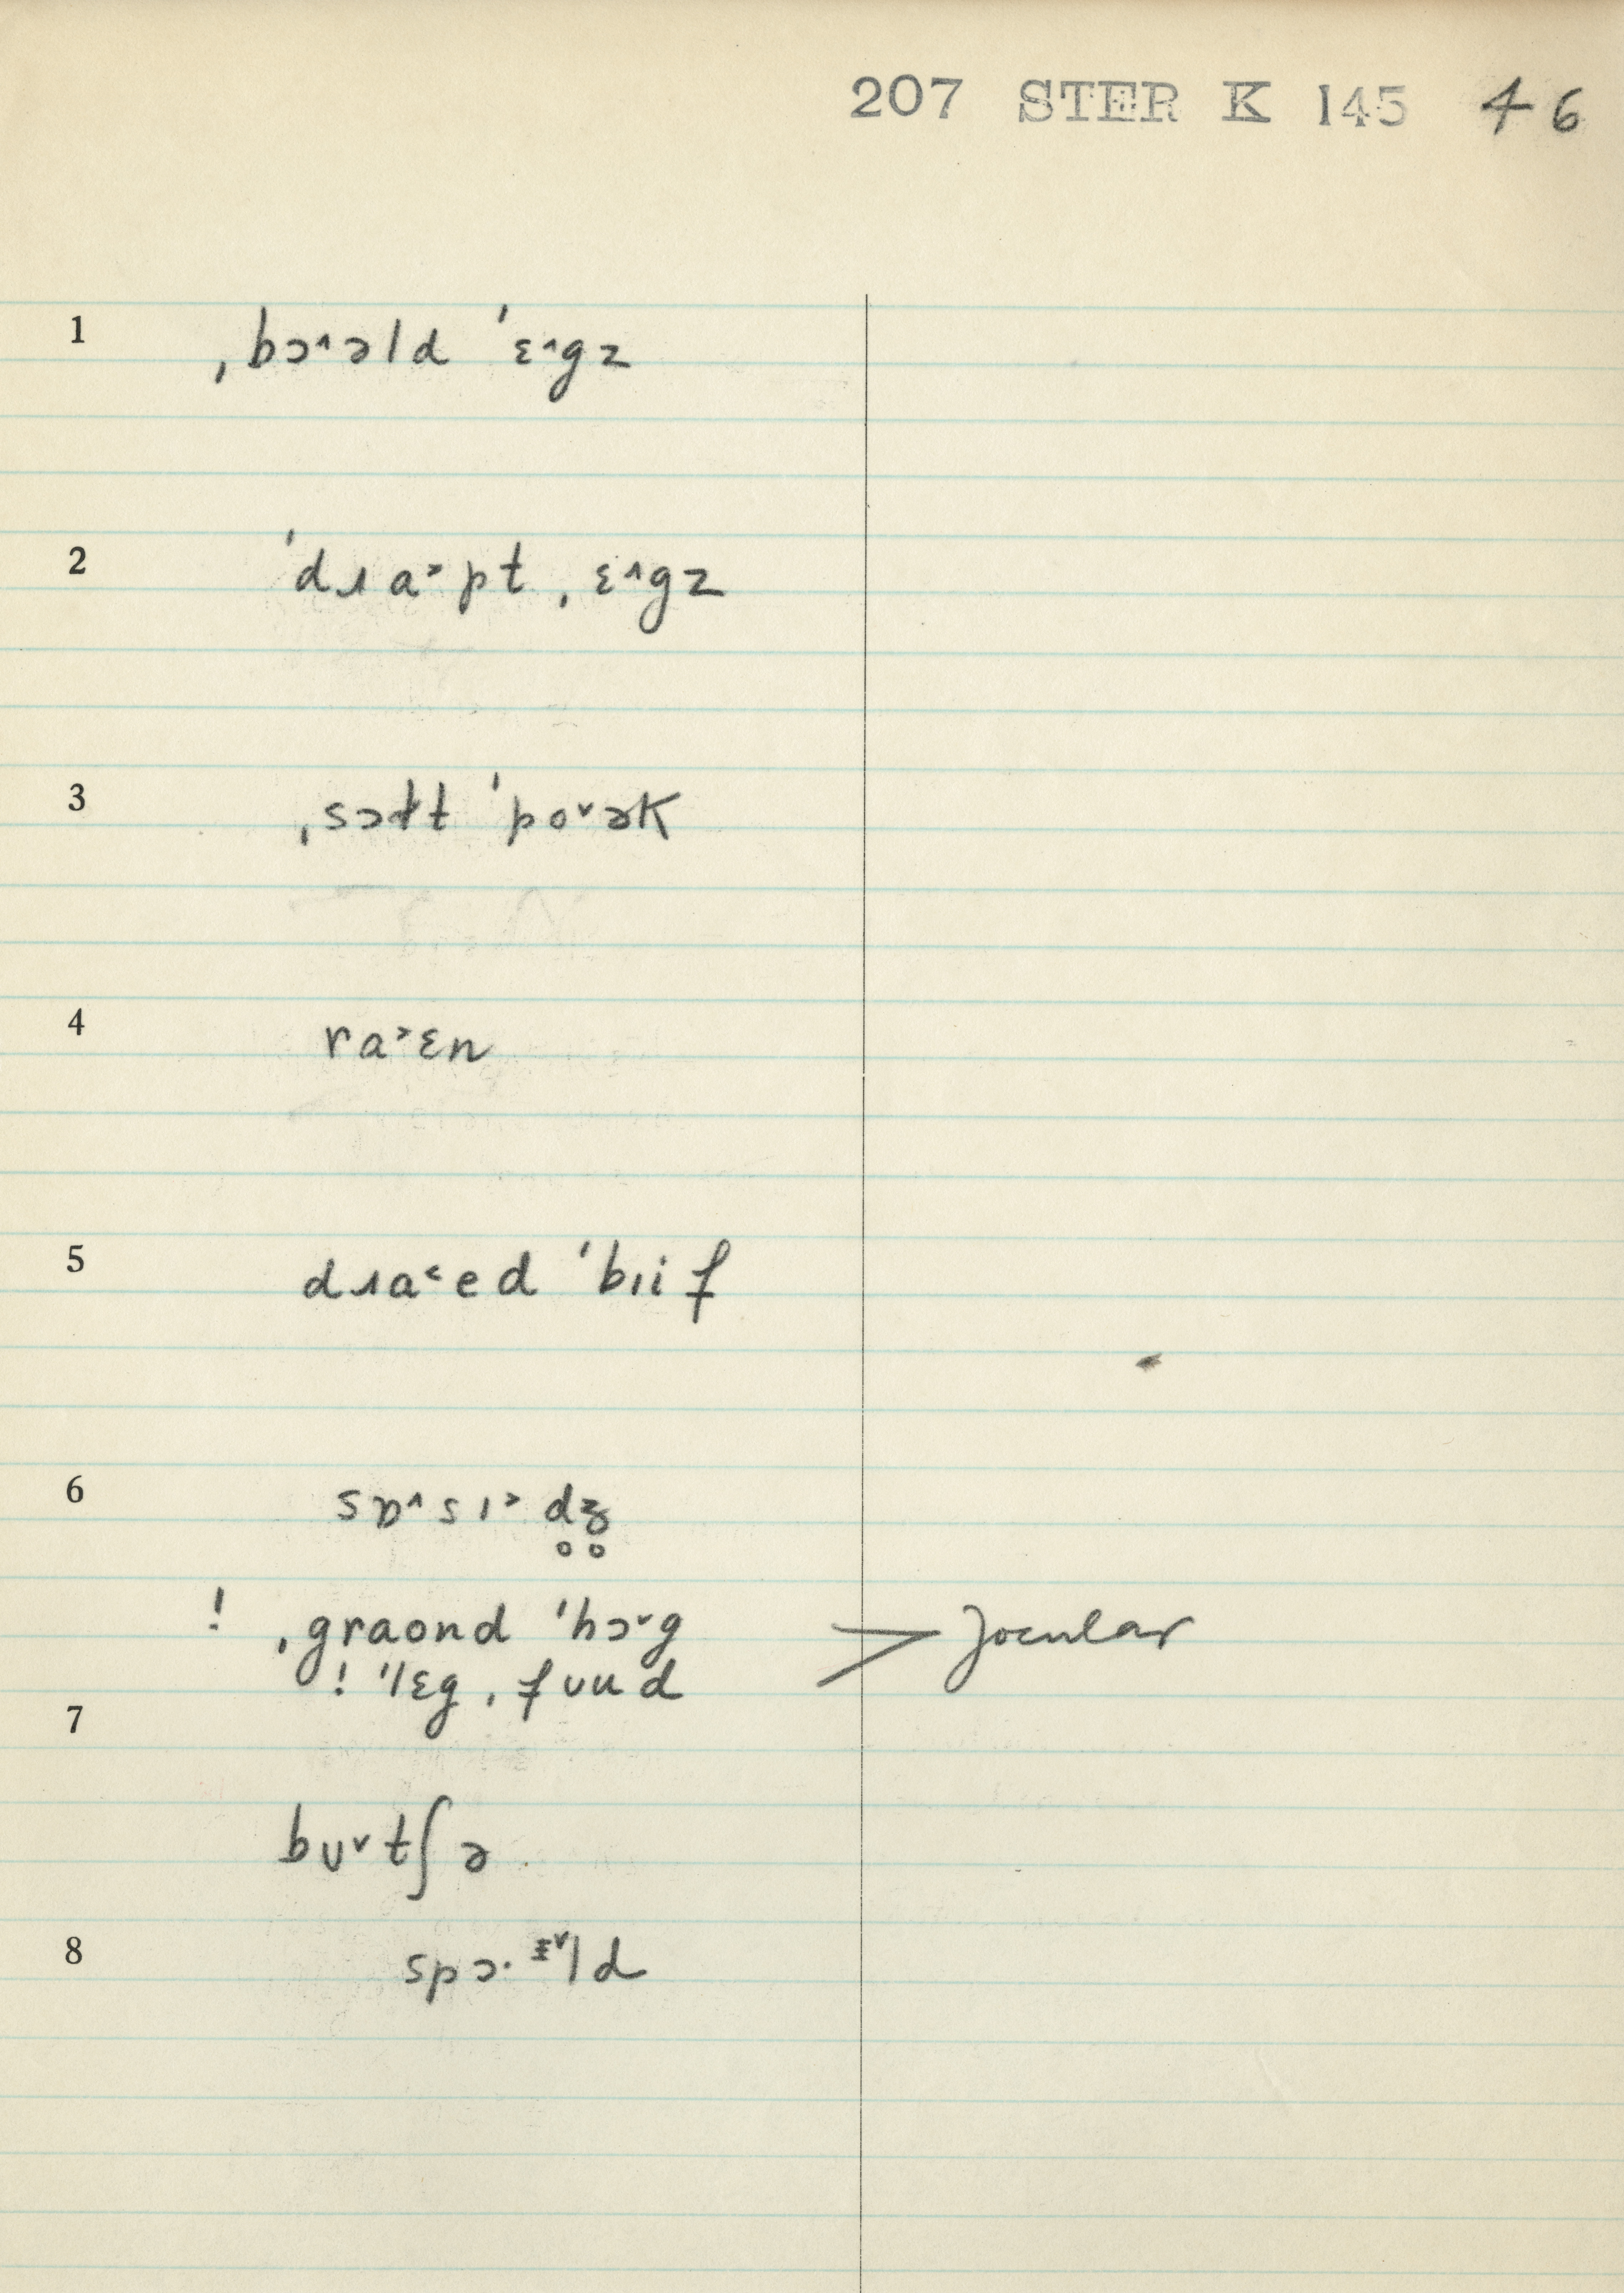 207 STER K 145 46
1 ˌbɔ˄əld ˈɛ˄gz
2 ˈdɹa˃pt ˌɛ˄gz
3 ˌsɔłt ˈpo˅ək
4 ra˃ɛn
5 dɹa˂ed ˈbɪif
6 sɒ˄sɪ˃d̥ʒ̥
! ˌgraond ˈhɔ˅g > Jocular
! ˈlɛgˌfuud
7
bʊ˅tʃə
8 spɔ· ᵻ˅ld